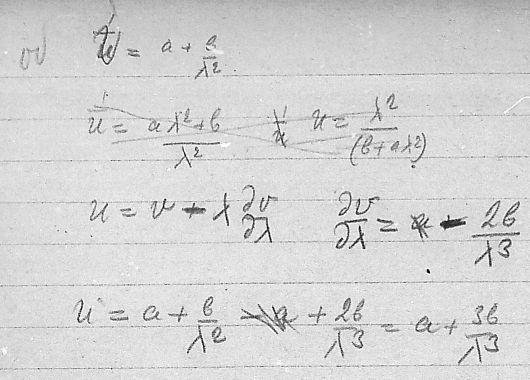 v = a + b/λ²
1/u = (aλ² + b)/λ² 1/u u = λ²/(b + aλ²)
u = v - λ ∂v/∂λ ∂v/∂λ = - 2b/λ3
u = a + b/λ² + 2b/λ3 = a + 3b/λ3